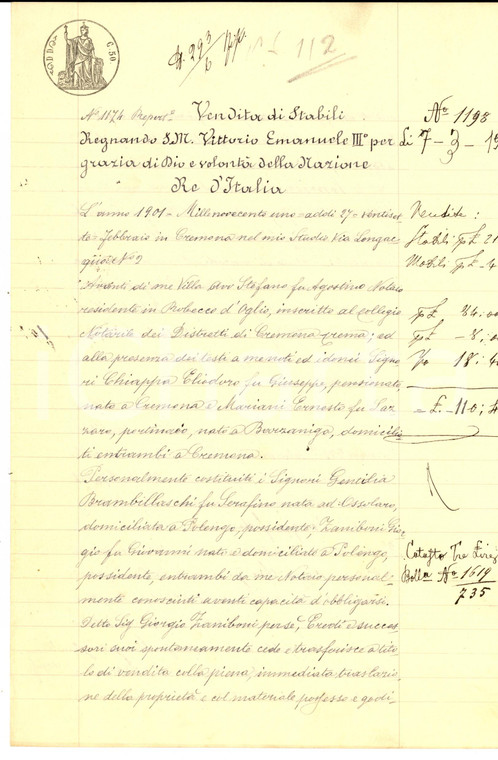 C. 50
N° 293/6
112
N° 1174 Repert° Vendita di Stabili
Regnando S.M. Vittorio Emanuele III° per
grazia di Dio e volontà della Nazione
Re d'Italia
L'anno 1901 - Millenovecento uno = addì 27 = ventiset
te = Febbraio in Cremona nel mio Studio Via Longac
N° 9
Avanti di me Villa Avv Stefano fu Agostino Notaro
residente in Robecco d'Oglio, inscritto al collegio
Notarile dei Distretti di Cremona Crema; ed
alla presenza dei testi a me noti ed idonei Signo
ri Chiappa Eliodoro fu Giuseppe, pensionato,
nato a Cremona e Mariani Ernesto fu Laz
zaro, portinaio, nato a Barzaniga, domicilia
ti entrambi a Cremona.
Personalmente costituiti i Signori Gentilia
Brambillaschi fu Serafino nata ad Ossolaro,
domiciliata a Polengo, possidente, Zaniboni Gior
gio fu Giovanni nato e domiciliato a Polengo,
possidente, entrambi da me Notaio personal-
mente conosciuti aventi capacità d'obbligarsi.
Detto Sig Giorgio Zaniboni per sè, Eredi e succes-
sori suoi spontaneamente cede e trasferisce a tito
lo di vendita colla piena, immediata traslazio,
ne della proprietà e col materiale possesso e godi-
N° 1198
Li 7 - 3 - 19
Vendite :
Stabili p£ 21
Mobili p£ - 4
p£ 84,00
p£ - 8,0
18,4
= £ - 110,4
Catasto Tre Lire
Bolla N° 1619
735